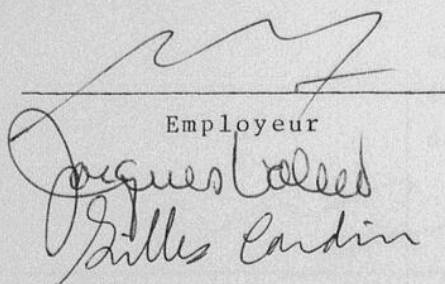 Employeur
Jacques
Gilles Cardin